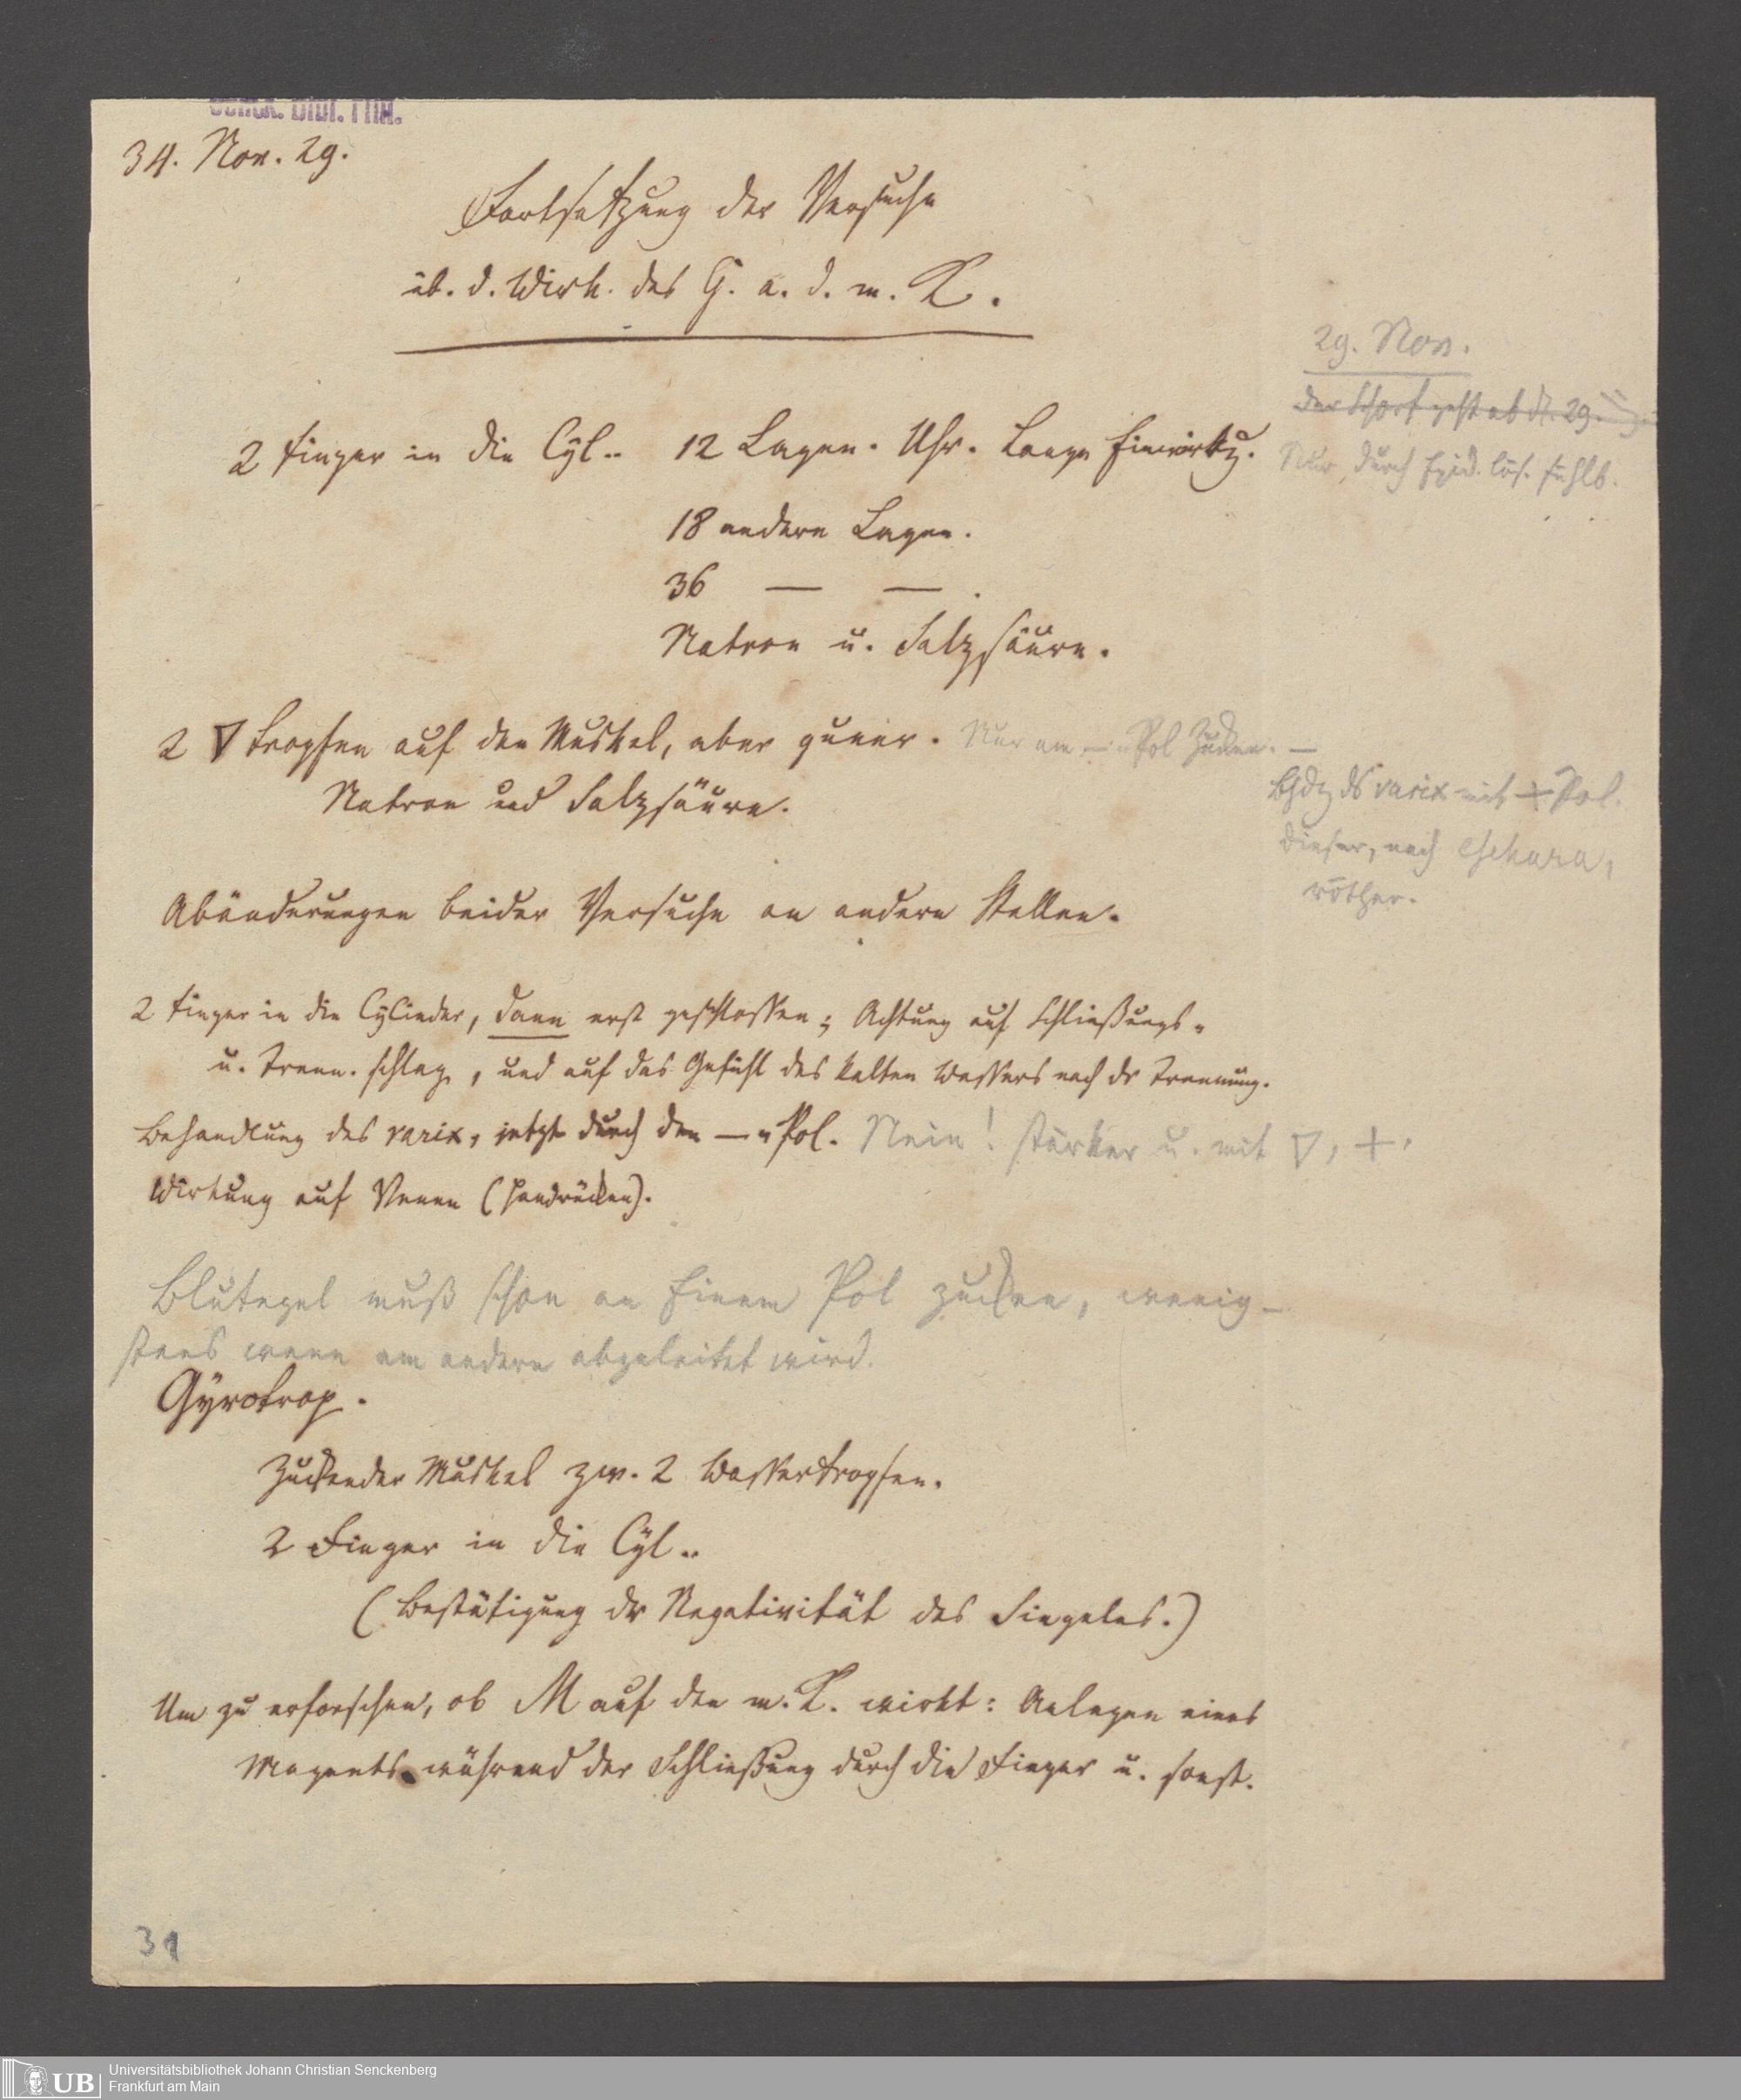 Senck. Bibl. Ffm.
34. Nov. 29.
Fortsetzung der Versuche
üb. d. Wirk. des G. a. d. m. K.
29. Nov.
der Schorf geht ab d. 29.
2 Finger in die Cyl.. 12 Lagen. Uhr. Lange Einwirkg.
Nur durch Epid. lös. fühlb.
18 andere Lagen.
36 — — .
Natron u. Salzsäure.
2 ▽ tropfen auf den Muskel, aber queer. Nur am – Pol Zucken. —
Bhdg ds varix mit + Pol.
Natron und Salzsäure.
dieser, nach eschara,
röther.
Abänderungen beider Versuche an andern Stellen.
2 Finger in die Cylinder, dann erst geschlossen; Achtung auf Schließungs-
u. Trenn. schlag, und auf das Gefühl des kalten Wassers nach dr Trennung.
Behandlung des varix, jetzt durch den — Pol. Nein! stärker u. mit ▽, +,
Wirkung auf Venen (Handrücken).
Blutegel muß schon an Einem Pol zucken, wenig-
stens wenn am andern abgeleitet wird.
Gyrotrop.
Zuckender Muskel zw. 2 Wassertropfen.
2 Finger in die Cyl..
(Bestätigung dr Negativität des Siegels.)
Um zu erforschen, ob M auf den m. K. wirkt: Anlegen eines
Magnets während der Schließung durch die Finger u. sonst.
31
UB Universitätsbibliothek Johann Christian Senckenberg
Frankfurt am Main